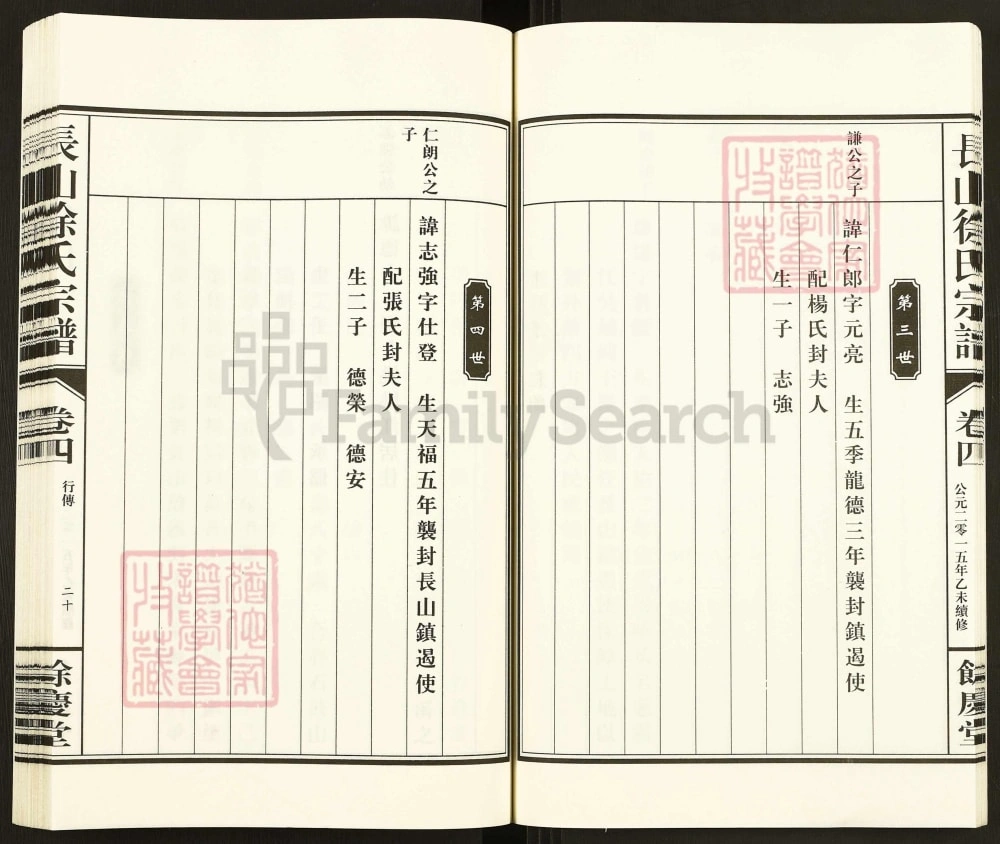 長山徐氏宗譜
卷四
公元二零一五年乙未續修
餘慶堂
第三世
謙公之子
諱仁郎字元亮 生五季龍德三年襲封鎮遏使
配楊氏封夫人
生一子 志強
第四世
仁朗公之子
諱志強字仕登 生天福五年襲封長山鎮遏使
配張氏封夫人
生二子 德榮 德安
長山徐氏宗譜
卷四
行傳
二十
餘慶堂
FamilySearch